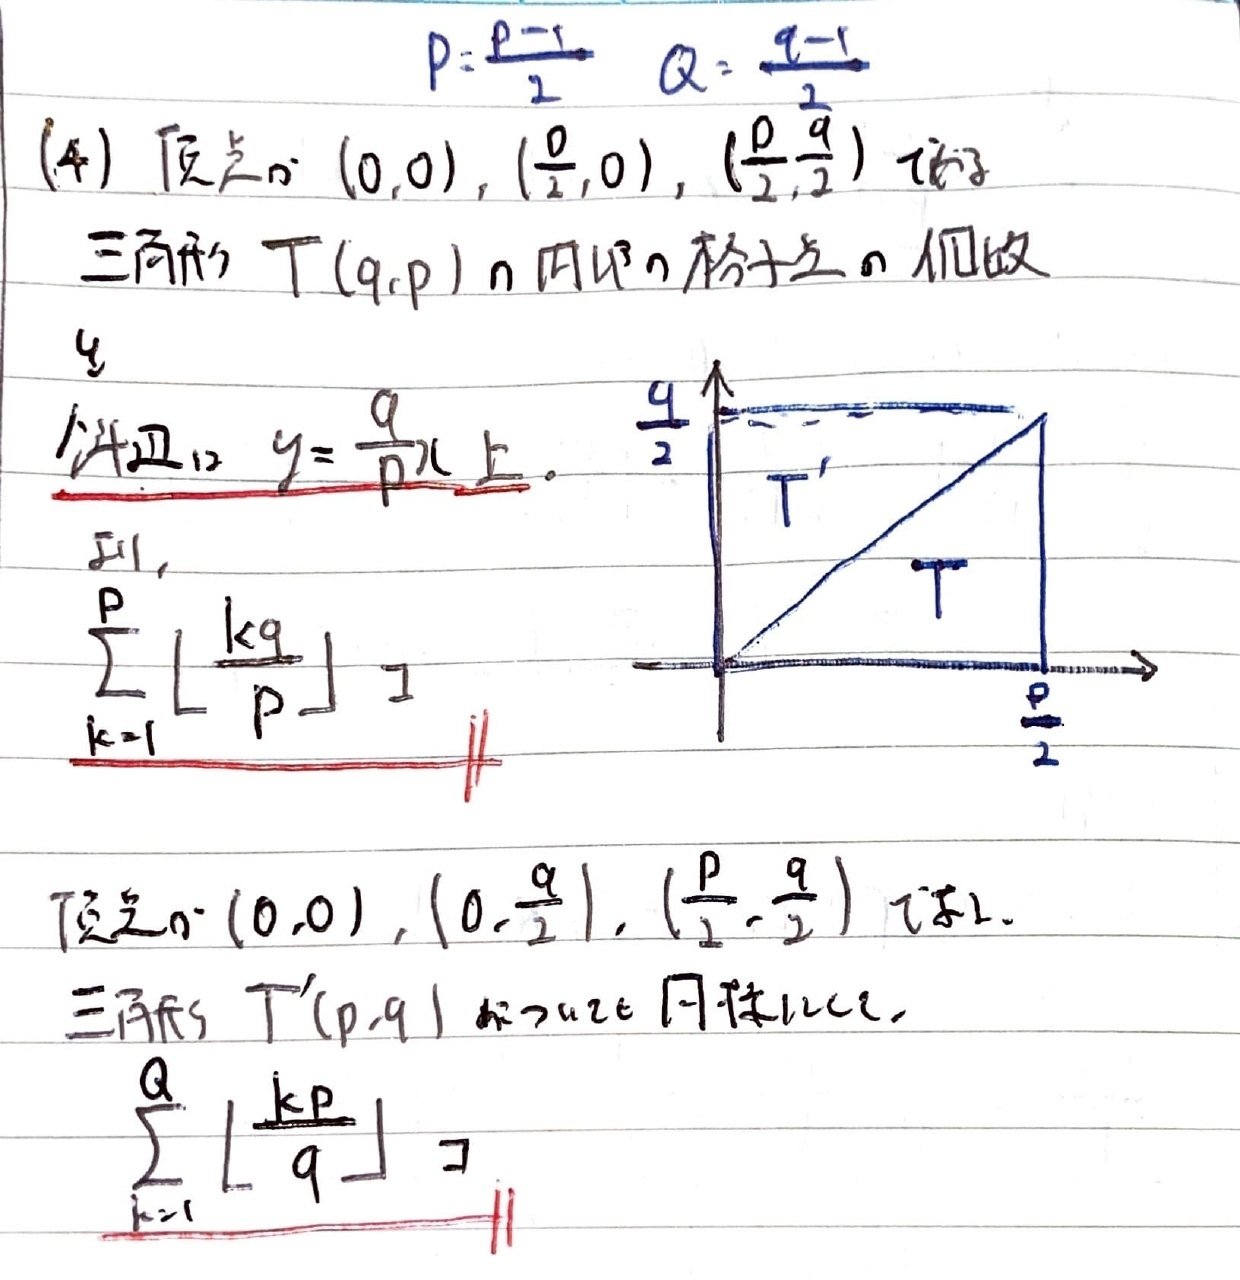 P = \frac{p-1}{2}  Q = \frac{q-1}{2}
(4) 頂点が (0,0), (\frac{p}{2},0), (\frac{p}{2},\frac{q}{2}) である
三角形 T(q,p) の内部の格子点の個数
は
斜辺は y = \frac{q}{p}x 上.
より,
\sum_{k=1}^{P} ⌊\frac{kq}{p}⌋ コ
\frac{q}{2}
T'
T
\frac{p}{2}
頂点が (0,0), (0,\frac{q}{2}), (\frac{p}{2},\frac{q}{2}) である.
三角形 T'(p,q) についても 同様にして,
\sum_{k=1}^{Q} ⌊\frac{kp}{q}⌋ コ